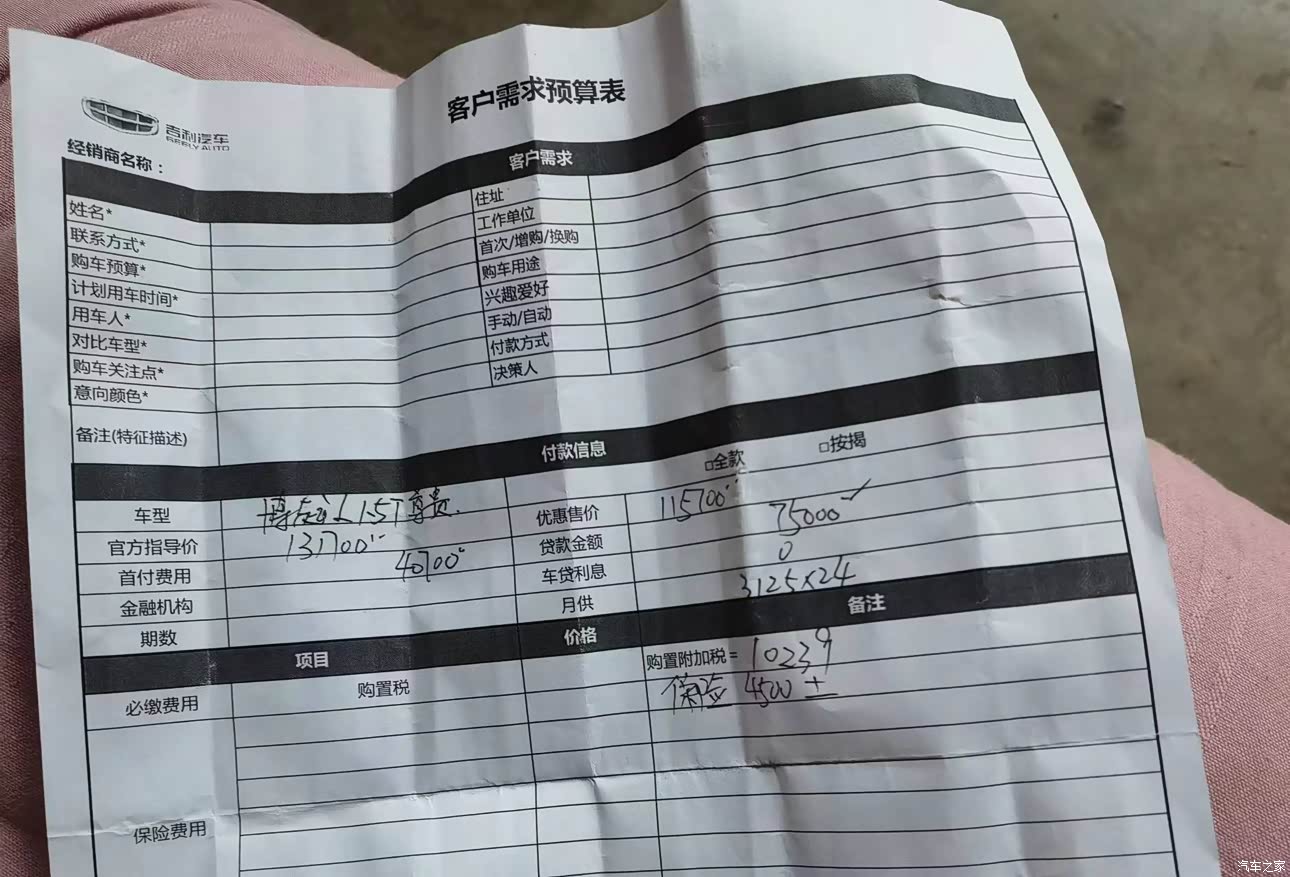 客户需求预算表
吉利汽车
GEELY AUTO
经销商名称：
客户需求
姓名* 住址
联系方式* 工作单位
购车预算* 首次/增购/换购
计划用车时间* 购车用途
用车人* 兴趣爱好
对比车型* 手动/自动
购车关注点* 付款方式
意向颜色* 决策人
备注(特征描述)
付款信息
□全款 □按揭
车型 博越L 1.5T尊贵 优惠售价 115700
官方指导价 131700 贷款金额 75000 ✓
首付费用 40700 车贷利息 0
金融机构 月供 3125×24
期数
项目 价格 备注
必缴费用 购置税 购置附加税= 10239
保险 4500 ±
保险费用
汽车之家